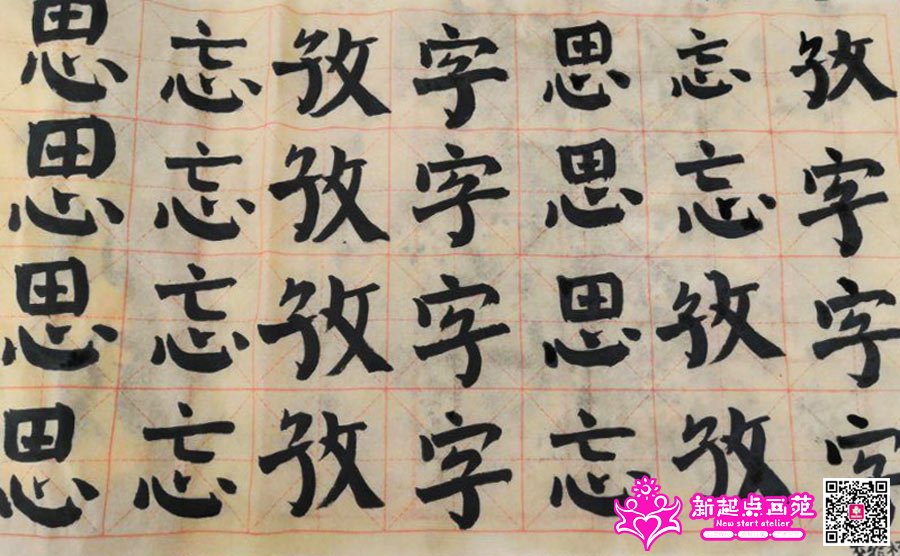 思忘孜字思忘孜
思忘孜字思忘字
思忘孜字思孜字
思忘孜字忘孜字
新起点画苑
New start atelier